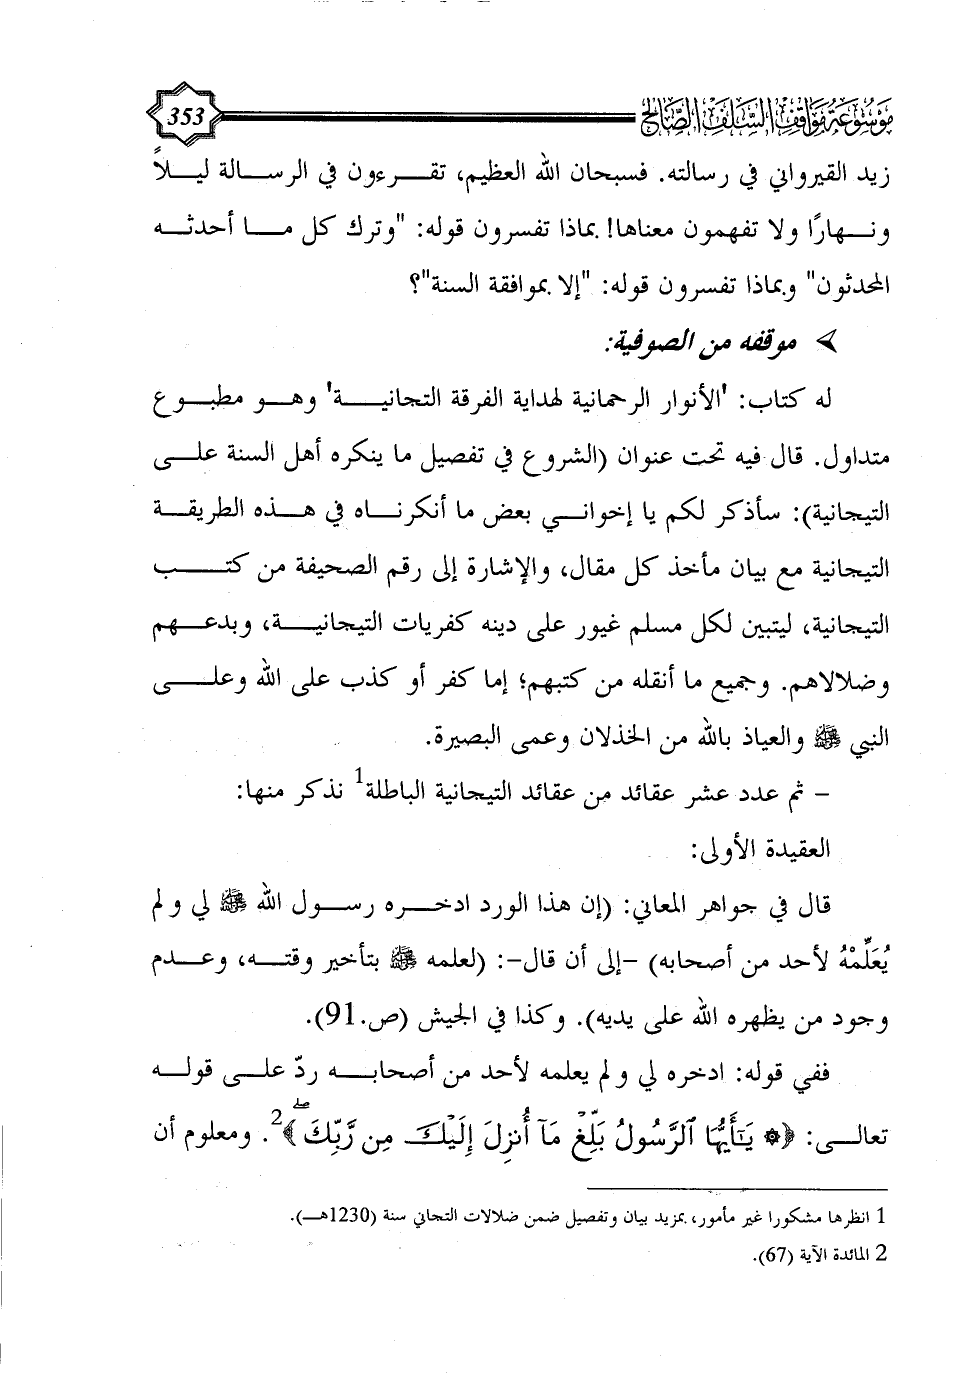 موسوعة مواقف السلف الصالح 353
زيد القيرواني في رسالته. فسبحان الله العظيم، تقـــرءون في الرســالة ليــلاً
ونـــهارًا ولا تفهمون معناها! بماذا تفسرون قوله: "وترك كل مـــا أحدثــه
المحدثون" وبماذا تفسرون قوله: "إلا بموافقة السنة"؟
موقفه من الصوفية:
له كتاب: 'الأنوار الرحمانية لهداية الفرقة التجانيـــة' وهـــو مطبــوع
متداول. قال فيه تحت عنوان (الشروع في تفصيل ما ينكره أهل السنة علـــى
التيجانية): سأذكر لكم يا إخوانـــي بعض ما أنكرنــاه في هـــذه الطريقــة
التيجانية مع بيان مأخذ كل مقال، والإشارة إلى رقم الصحيفة من كتـــب
التيجانية، ليتبين لكل مسلم غيور على دينه كفريات التيجانيــة، وبدعــهم
وضلالاهم. وجميع ما أنقله من كتبهم؛ إما كفر أو كذب على الله وعلـــى
النبي ﷺ والعياذ بالله من الخذلان وعمى البصيرة.
- ثم عدد عشر عقائد من عقائد التيجانية الباطلة1 نذكر منها:
العقيدة الأولى:
قال في جواهر المعاني: (إن هذا الورد ادخـــره رســـول الله ﷺ لي ولم
يُعَلِّمْهُ لأحد من أصحابه) -إلى أن قال-: (لعلمه ﷺ بتأخير وقتــه، وعــدم
وجود من يظهره الله على يديه). وكذا في الجيش (ص.91).
ففي قوله: ادخره لي ولم يعلمه لأحد من أصحابـــه ردّ علـــى قولـــه
تعالـــى: ﴿۞ يَٰٓأَيُّهَا ٱلرَّسُولُ بَلِّغۡ مَآ أُنزِلَ إِلَيۡكَ مِن رَّبِّكَۖ﴾2. ومعلوم أن
1 انظرها مشكورا غير مأمور، بمزيد بيان وتفصيل ضمن ضلالات التجاني سنة (1230هــ).
2 المائدة الآية (67).